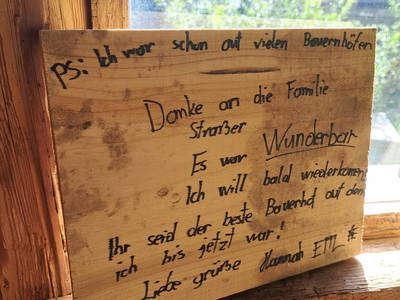 PS: Ich war schon auf vielen Bauernhöfen
Danke an die Familie
Straßer
Es war Wunderbar
Ich will bald wiederkommen
Ihr seid der beste Bauerhof auf dem
ich bis jetzt war!
Liebe grüße Hannah